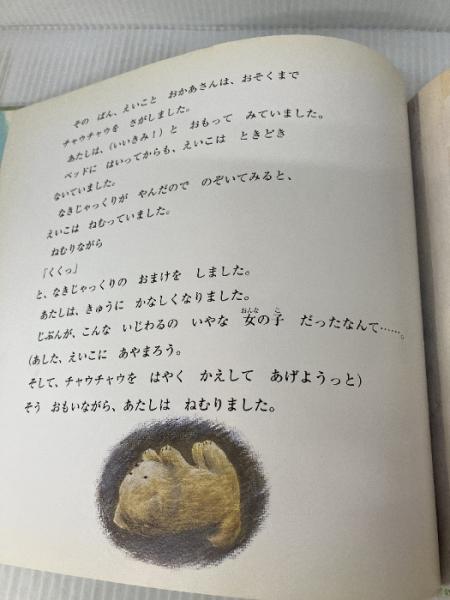 その ばん、えいこと おかあさんは、おそくまで
チャウチャウを さがしました。
あたしは、(いいきみ!)と おもって みていました。
ベッドに はいってからも、えいこは ときどき
ないていました。
なきじゃっくりが やんだので のぞいてみると、
えいこは ねむっていました。
ねむりながら
「くくっ」
と、なきじゃっくりの おまけを しました。
あたしは、きゅうに かなしくなりました。
じぶんが、こんな いじわるの いやな 女の子 だったなんて……。
(あした、えいこに あやまろう。
そして、チャウチャウを はやく かえして あげようっと)
そう おもいながら、あたしは ねむりました。